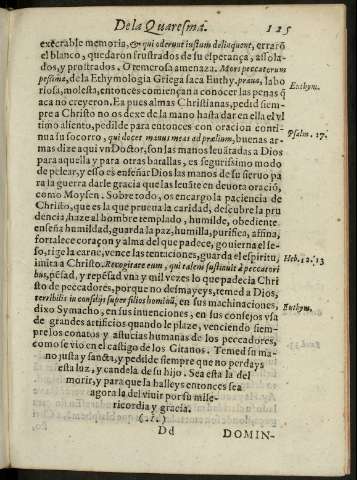 De la Quaresma. 125
execrable memoria, & qui oderunt iustum delinquent, erraró
el blanco, quedaron frustrados de su esperança, assola-
dos, y prostrados. O temerosa amenaza. Mors peccatorum
pessima, de la Ethymologia Griega saca Euthy. praua, labo
riosa, molesta, entonces comiençan a conocer las penas q̃
aca no creyeron. Ea pues almas Christianas, pedid siem-
pre a Christo no os dexe de la mano hasta dar en ella el vl
timo aliento, pedilde para entonces con oracion conti-
nua su socorro, qui docet manus meas ad prælium, buenas ar-
mas dize aqui vn Doctor, son las manos leuãtadas a Dios
para aquella y para otras batallas, es segurissimo modo
de pelear, y esso es enseñar Dios las manos de su sieruo pa
ra la guerra darle gracia que las leuãte en deuota oració,
como Moysen. Sobre todo, os encargo la paciencia de
Christo, que es la que prueua la caridad, descubre la pru
dencia, haze al hombre templado, humilde, obediente
enseña humildad, guarda la paz, humilla, purifica, affina,
fortalece coraçon y alma del que padece, gouierna el se-
so, rige la carne, vence las tentaciones, guarda el espiritu,
imita a Christo. Recogitate eum, qui talem sustinuit à peccatori
bus, pẽsad, y repẽsad vna y mil vezes lo que padecia Chri
sto de peccadores, porque no desmayeys, temed a Dios,
terribilis in consilijs super filios hominũ, en sus machinaciones,
dixo Symacho, en sus inuenciones, en sus consejos vsa
de grandes artificios quando le plaze, venciendo siem-
pre los conatos y astucias humanas de los peccadores,
como se vio en el castigo de los Gitanos. Temed su ma-
no justa y sancta, y pedilde siempre que no perdays
esta luz, y candela de su hijo. Sea esta la del
morir, y para que la halleys entonces sea
agora la del viuir por su mise-
ricordia y gracia.
(.?.)
Dd DOMIN-
Euthym.
Psalm. 17.
Heb. 12. 13
Euthym.